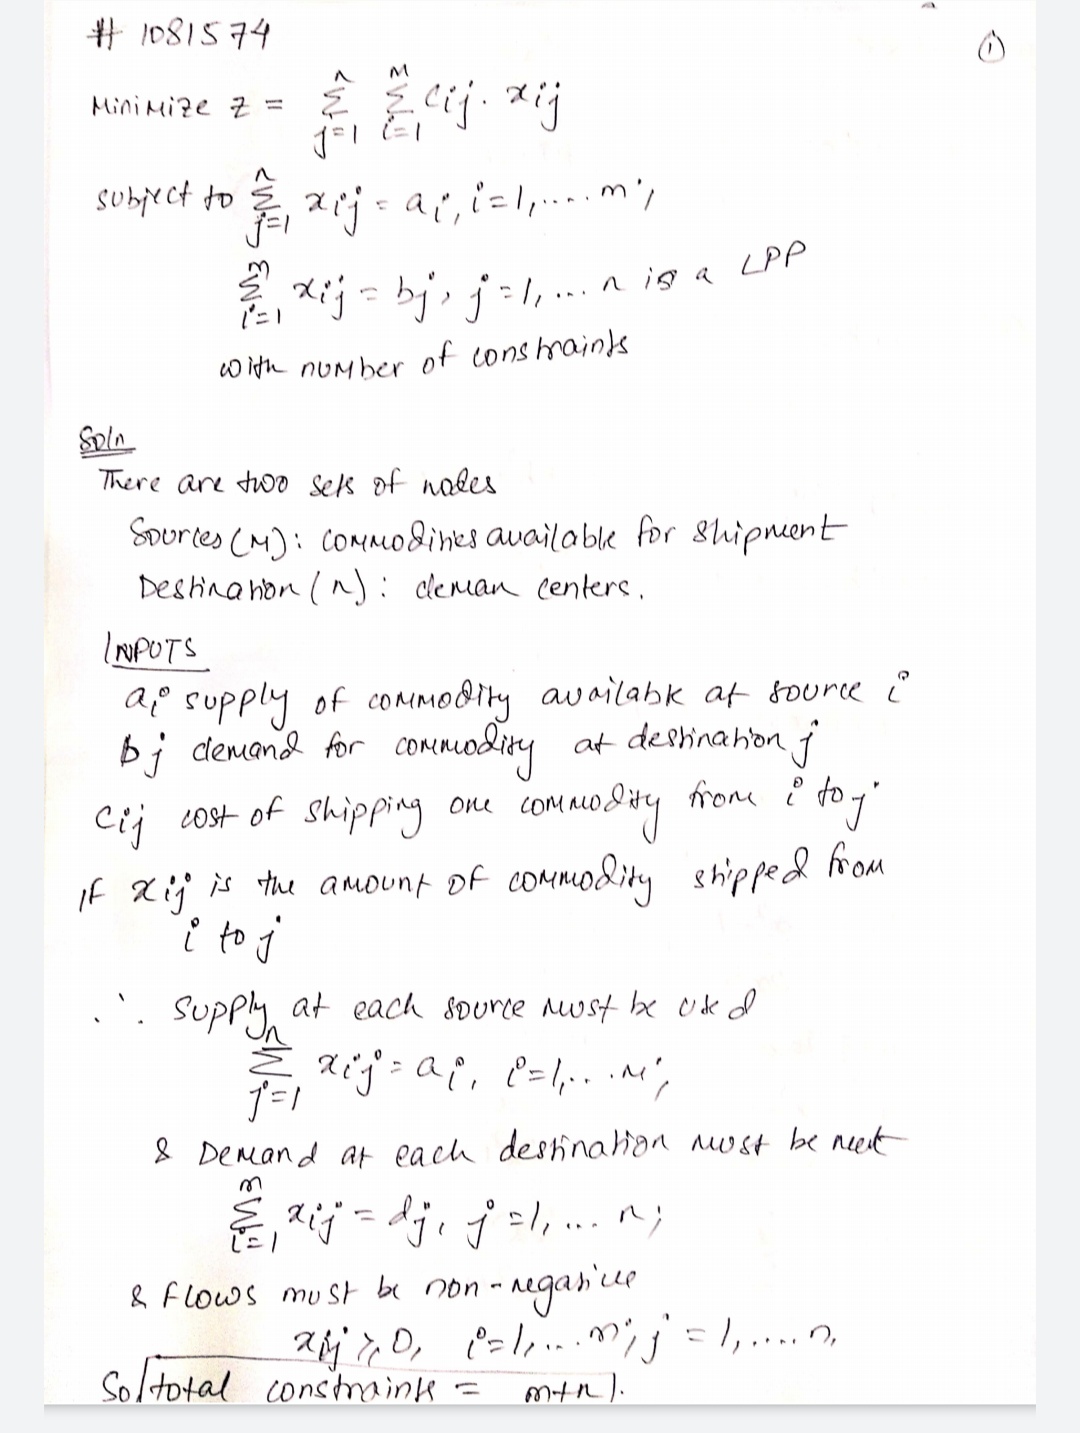 # 1081574
①
Minimize z = n∑j=1 m∑i=1 cij. xij
subject to n∑j=1 xij = ai, i=1,....m;
m∑i=1 xij = bj, j=1,... n is a LPP
with number of constraints
Soln
There are two sets of nodes
Sources (M): commodities available for shipment
Destination (n): deman centers.
INPUTS
ai supply of commodity available at source i
bj demand for commodity at destination j
cij cost of shipping one commodity from i to j
if xij is the amount of commodity shipped from
i to j
∴ supply at each source must be used
n∑j=1 xij = ai, i=1,...m;
& Demand at each destination must be meet
m∑i=1 xij = dj, j=1,... n;
& flows must be non-negative
xij ≥ 0, i=1,....m; j=1,.....n,
So/total constraints = m+n).